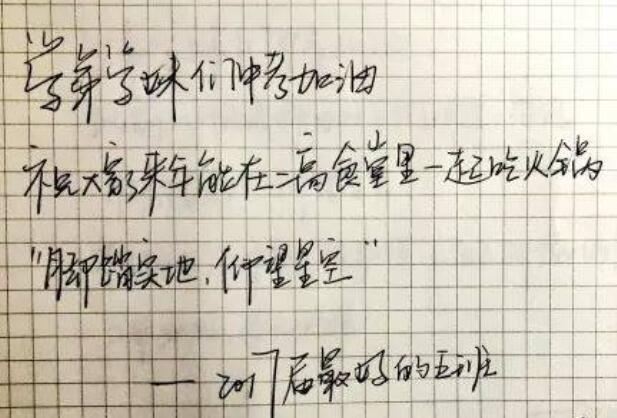 学弟学妹们中考加油
祝大家来年能在二高食堂里一起吃火锅
"脚踏实地，仰望星空"
——2017届最好的五班